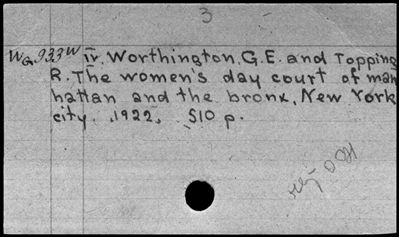 3
WG.933W iv. Worthington, G.E. and Topping
R. The women's day court of man
hattan and the bronx, New York
city. .1922. 510 p.